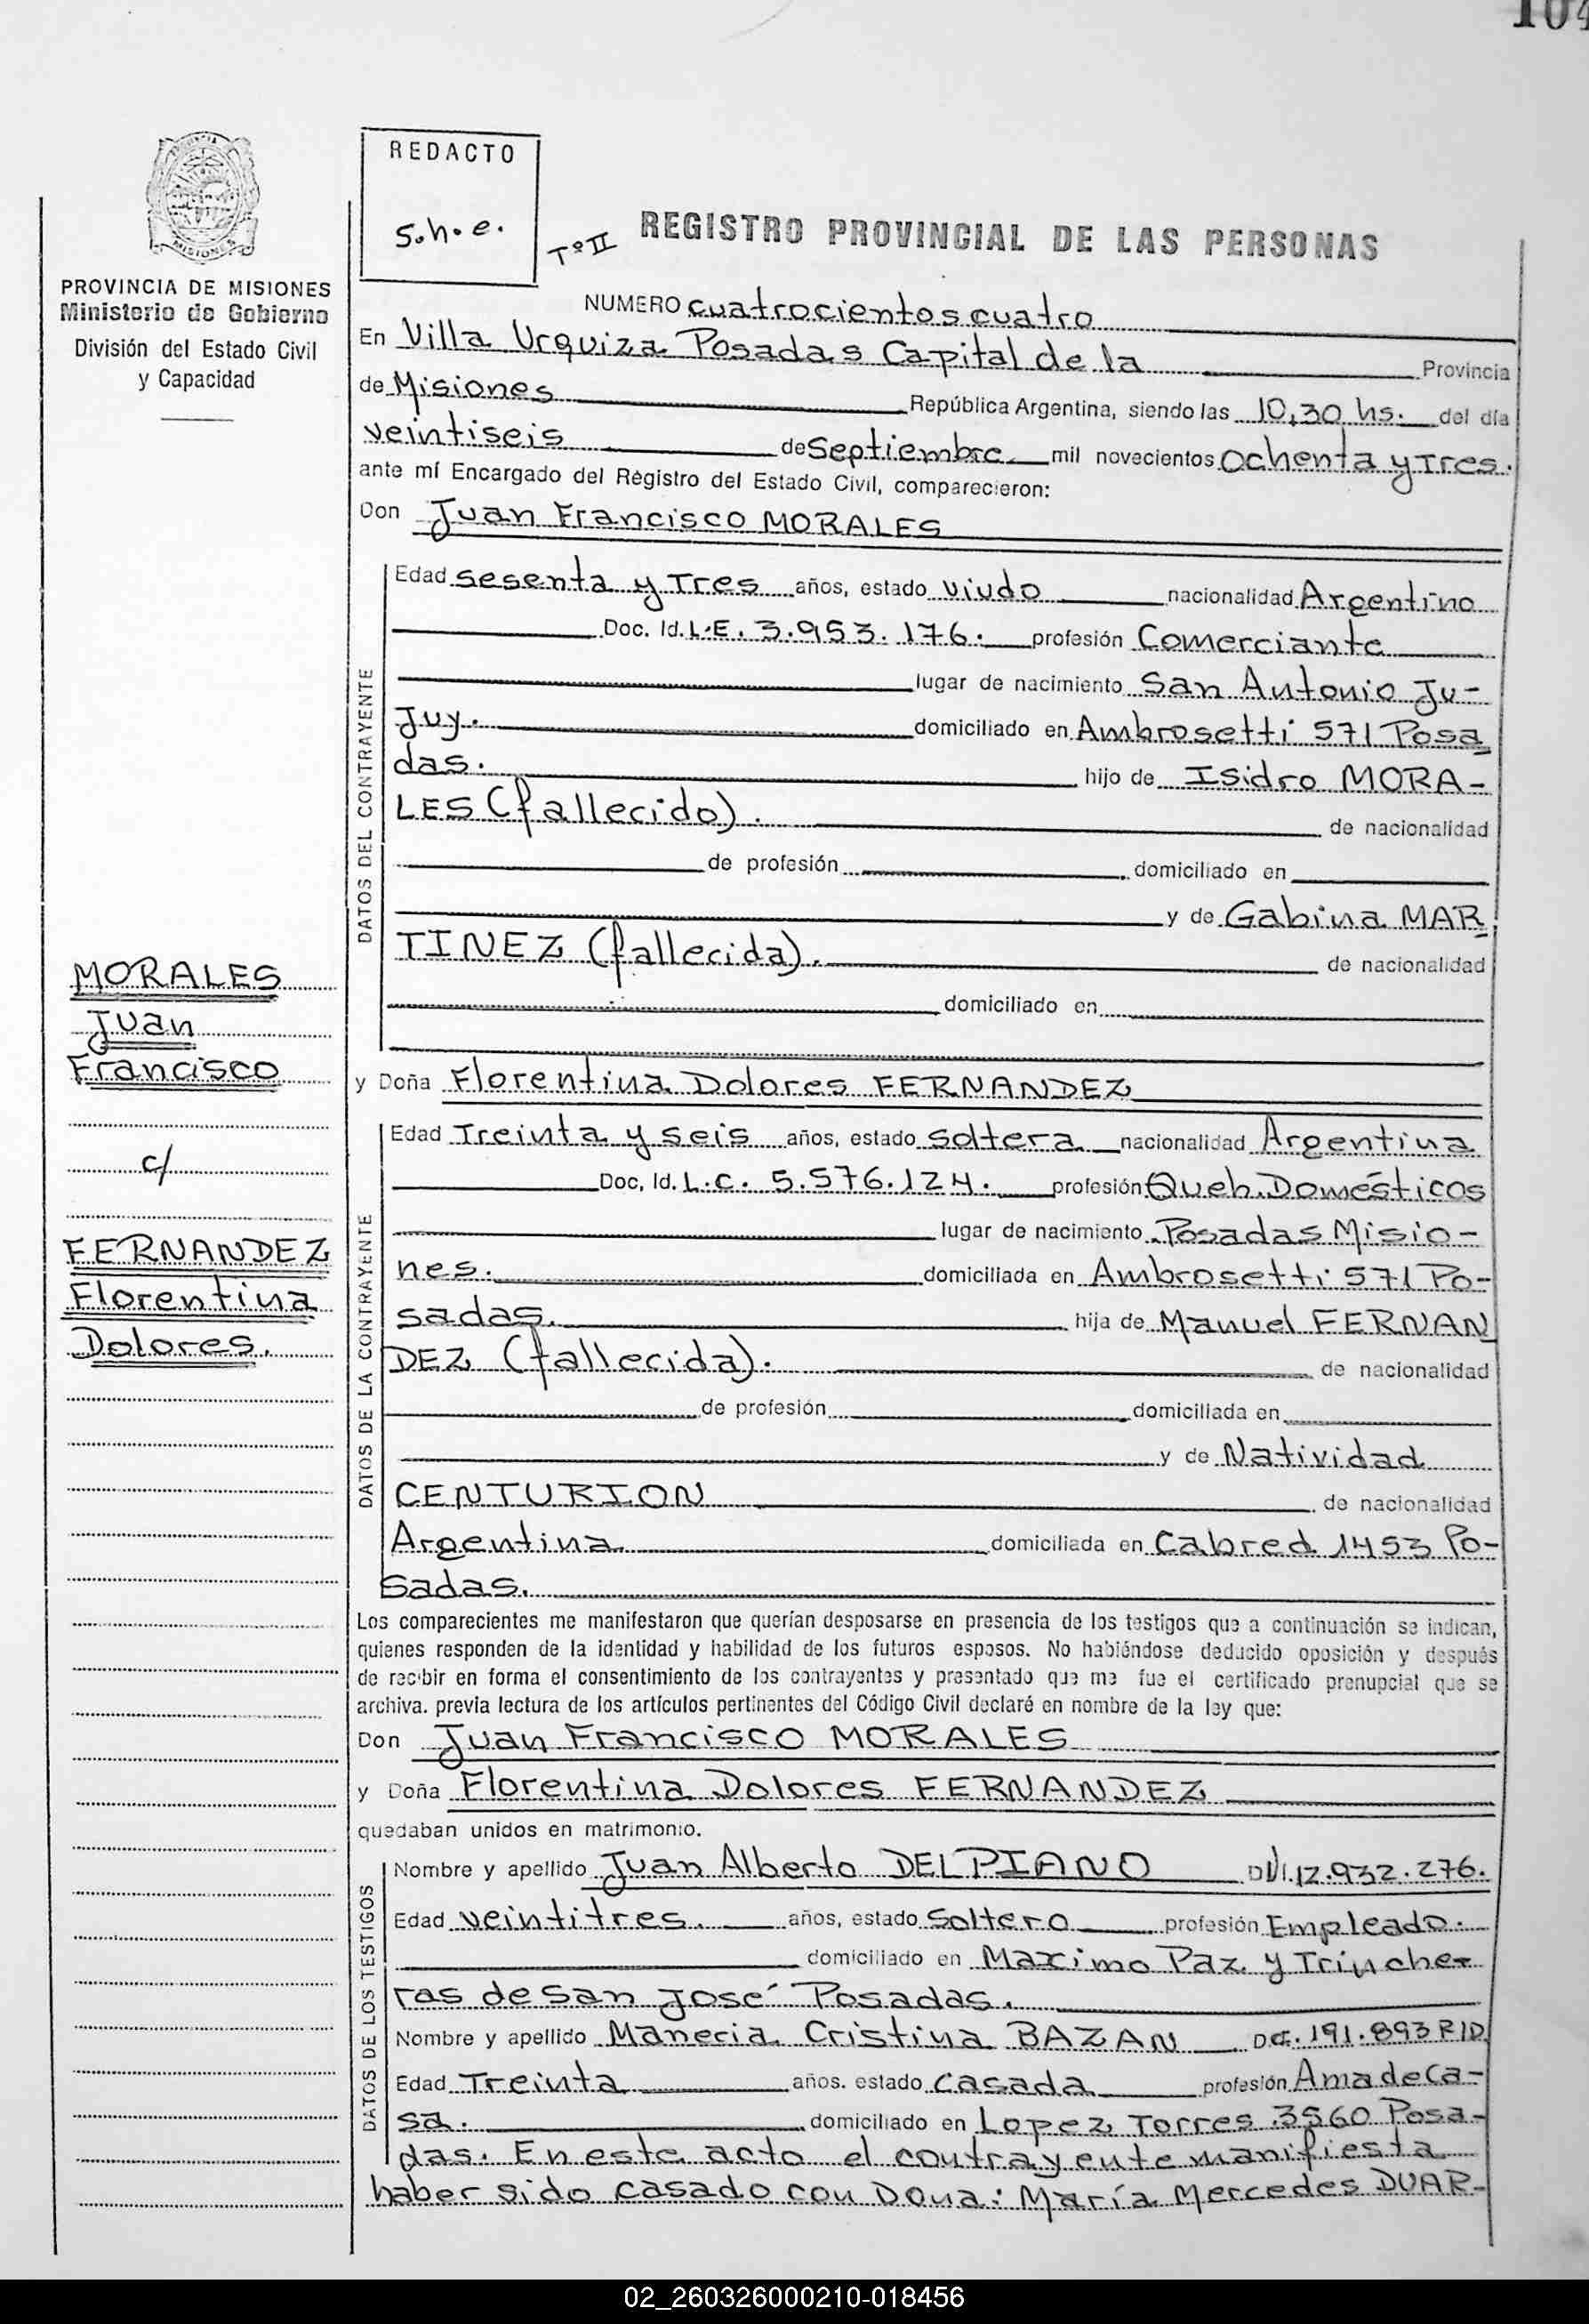 104
REDACTO
S.h.e.
Tº II
REGISTRO PROVINCIAL DE LAS PERSONAS
MISIONES
PROVINCIA DE MISIONES
Ministerio de Gobierno
División del Estado Civil
y Capacidad
NUMERO cuatrocientos cuatro
En Villa Urquiza Posadas Capital de la Provincia
de Misiones República Argentina, siendo las 10,30 hs. del día
veintiseis de Septiembre mil novecientos ochenta y Tres.
ante mí Encargado del Registro del Estado Civil, comparecieron:
Don Juan Francisco MORALES
DATOS DEL CONTRAYENTE
Edad sesenta y Tres años, estado viudo nacionalidad Argentino
Doc. Id. L.E. 3.953.176. profesión Comerciante
lugar de nacimiento San Antonio Ju-
juy. domiciliado en Ambrosetti 571 Posa
das. hijo de Isidro MORA-
LES (fallecido). de nacionalidad
de profesión domiciliado en
y de Gabina MAR
TINEZ (fallecida). de nacionalidad
domiciliado en
MORALES
Juan
Francisco
c/
FERNANDEZ
Florentina
Dolores.
y Doña Florentina Dolores FERNANDEZ
DATOS DE LA CONTRAYENTE
Edad Treinta y seis años, estado soltera nacionalidad Argentina
Doc, Id. L.C. 5.576.124. profesión Queh. Domésticos
lugar de nacimiento Posadas Misio-
nes. domiciliada en Ambrosetti 571 Po-
sadas. hija de Manuel FERNAN
DEZ (fallecida). de nacionalidad
de profesión domiciliada en
y de Natividad
CENTURION de nacionalidad
Argentina domiciliada en Cabred 1453 Po-
sadas.
Los comparecientes me manifestaron que querían desposarse en presencia de los testigos que a continuación se indican,
quienes responden de la identidad y habilidad de los futuros esposos. No habiéndose deducido oposición y después
de recibir en forma el consentimiento de los contrayentes y presentado que me fue el certificado prenupcial que se
archiva. previa lectura de los artículos pertinentes del Código Civil declaré en nombre de la ley que:
Don Juan Francisco MORALES
y Doña Florentina Dolores FERNANDEZ
quedaban unidos en matrimonio.
DATOS DE LOS TESTIGOS
Nombre y apellido Juan Alberto DELPIANO DNI.12.932.276.
Edad veintitres. años, estado Soltero profesión Empleado.
domiciliado en Maximo Paz y Trinche-
ras de San José Posadas.
Nombre y apellido Maneria Cristina BAZAN 191.893 RID.
Edad Treinta años. estado casada profesión Ama de Ca-
sa. domiciliado en Lopez Torres 3560 Posa-
das. En este acto el contrayente manifiesta
haber sido casado con Dona: María Mercedes DUAR-
02_260326000210-018456